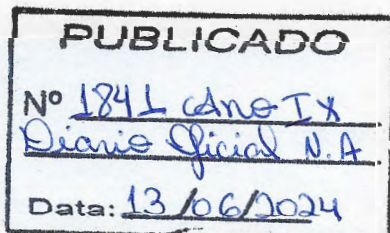 PUBLICADO
Nº 1841 Ano IX
Diario Oficial N.A
Data: 13/06/2024